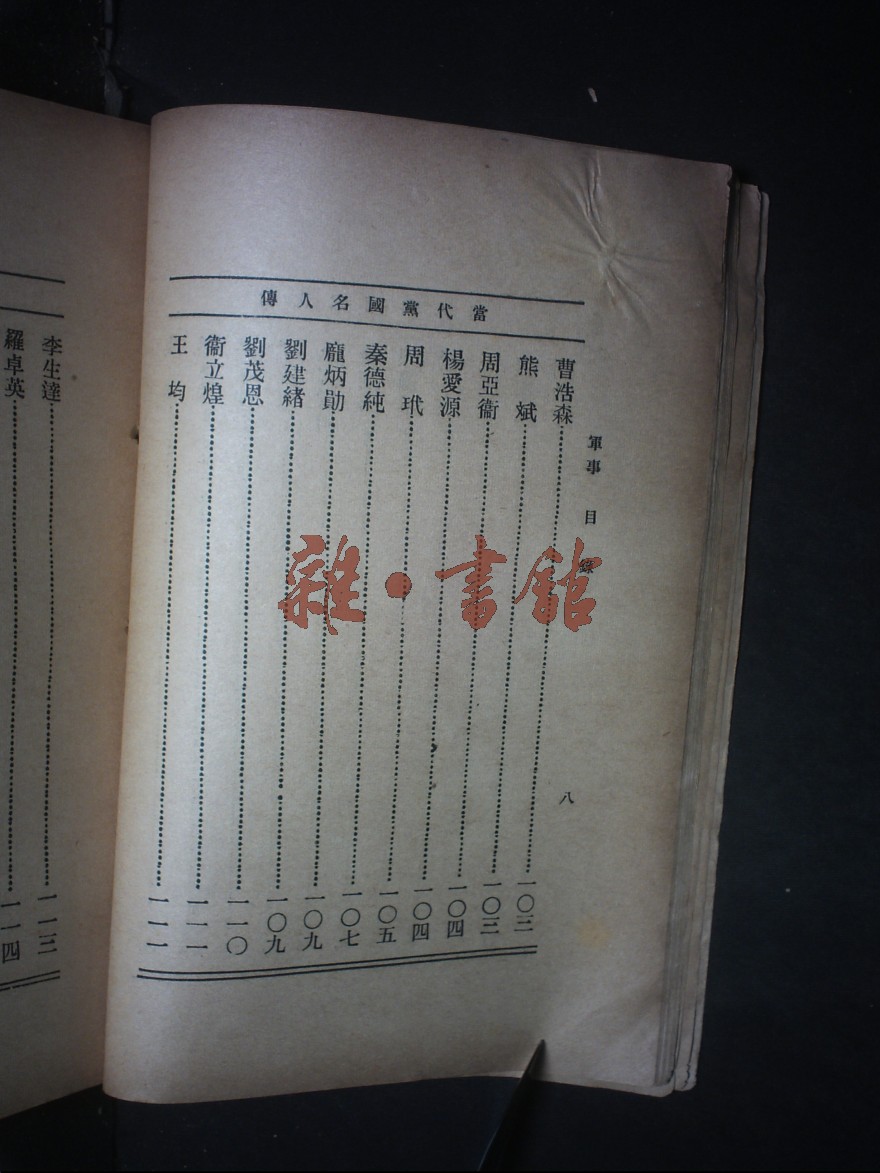 當代黨國名人傳
軍事 目錄 八
曹浩森……一〇三
熊斌……一〇三
周亞衞……一〇四
楊愛源……一〇四
周玳……一〇五
秦德純……一〇七
龐炳勛……一〇九
劉建緒……一〇九
劉茂恩……一一〇
衞立煌……一一一
王均……一一一
李生達……一一三
羅卓英……一一四
雜·書館